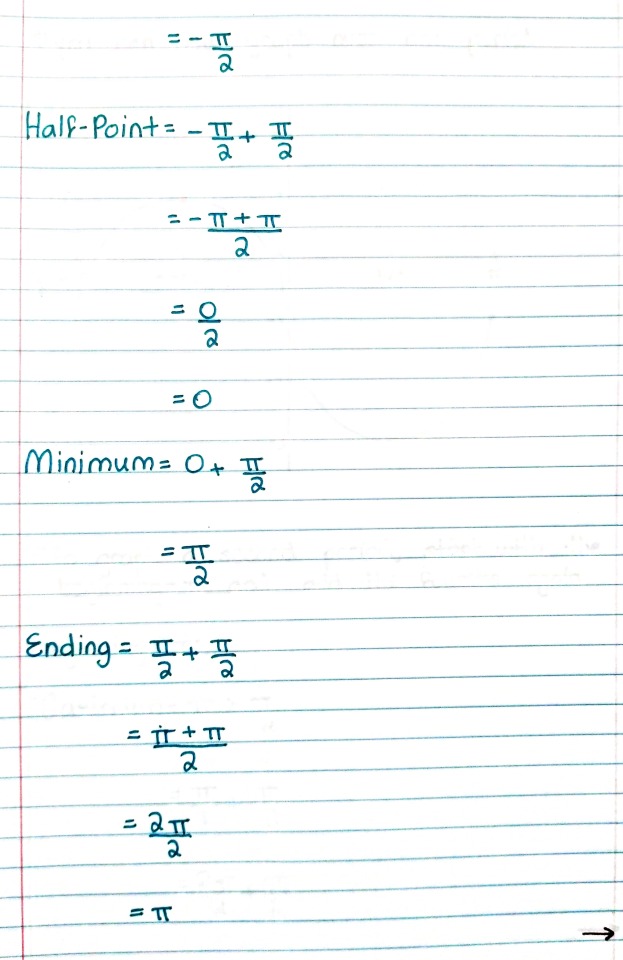 = - π/2
Half-Point = - π/2 + π/2
= - π + π/2
= 0/2
= 0
Minimum = 0 + π/2
= π/2
Ending = π/2 + π/2
= π + π/2
= 2π/2
= π
→